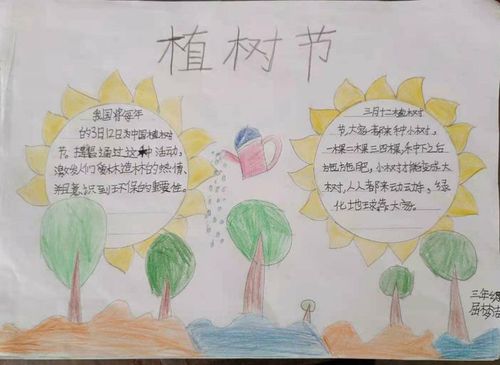 植树节
我国将每年
的3月12日为中国植树
节。提倡通过这种活动,
激发人们爱林造林的热情、
意识到环保的重要性。
三月十二植树
节,大家都来种小树,
一棵二棵三四棵,种下之后
施施肥,小树才能变成大
树,人人都来动动手,绿
化地球靠大家。
三年级